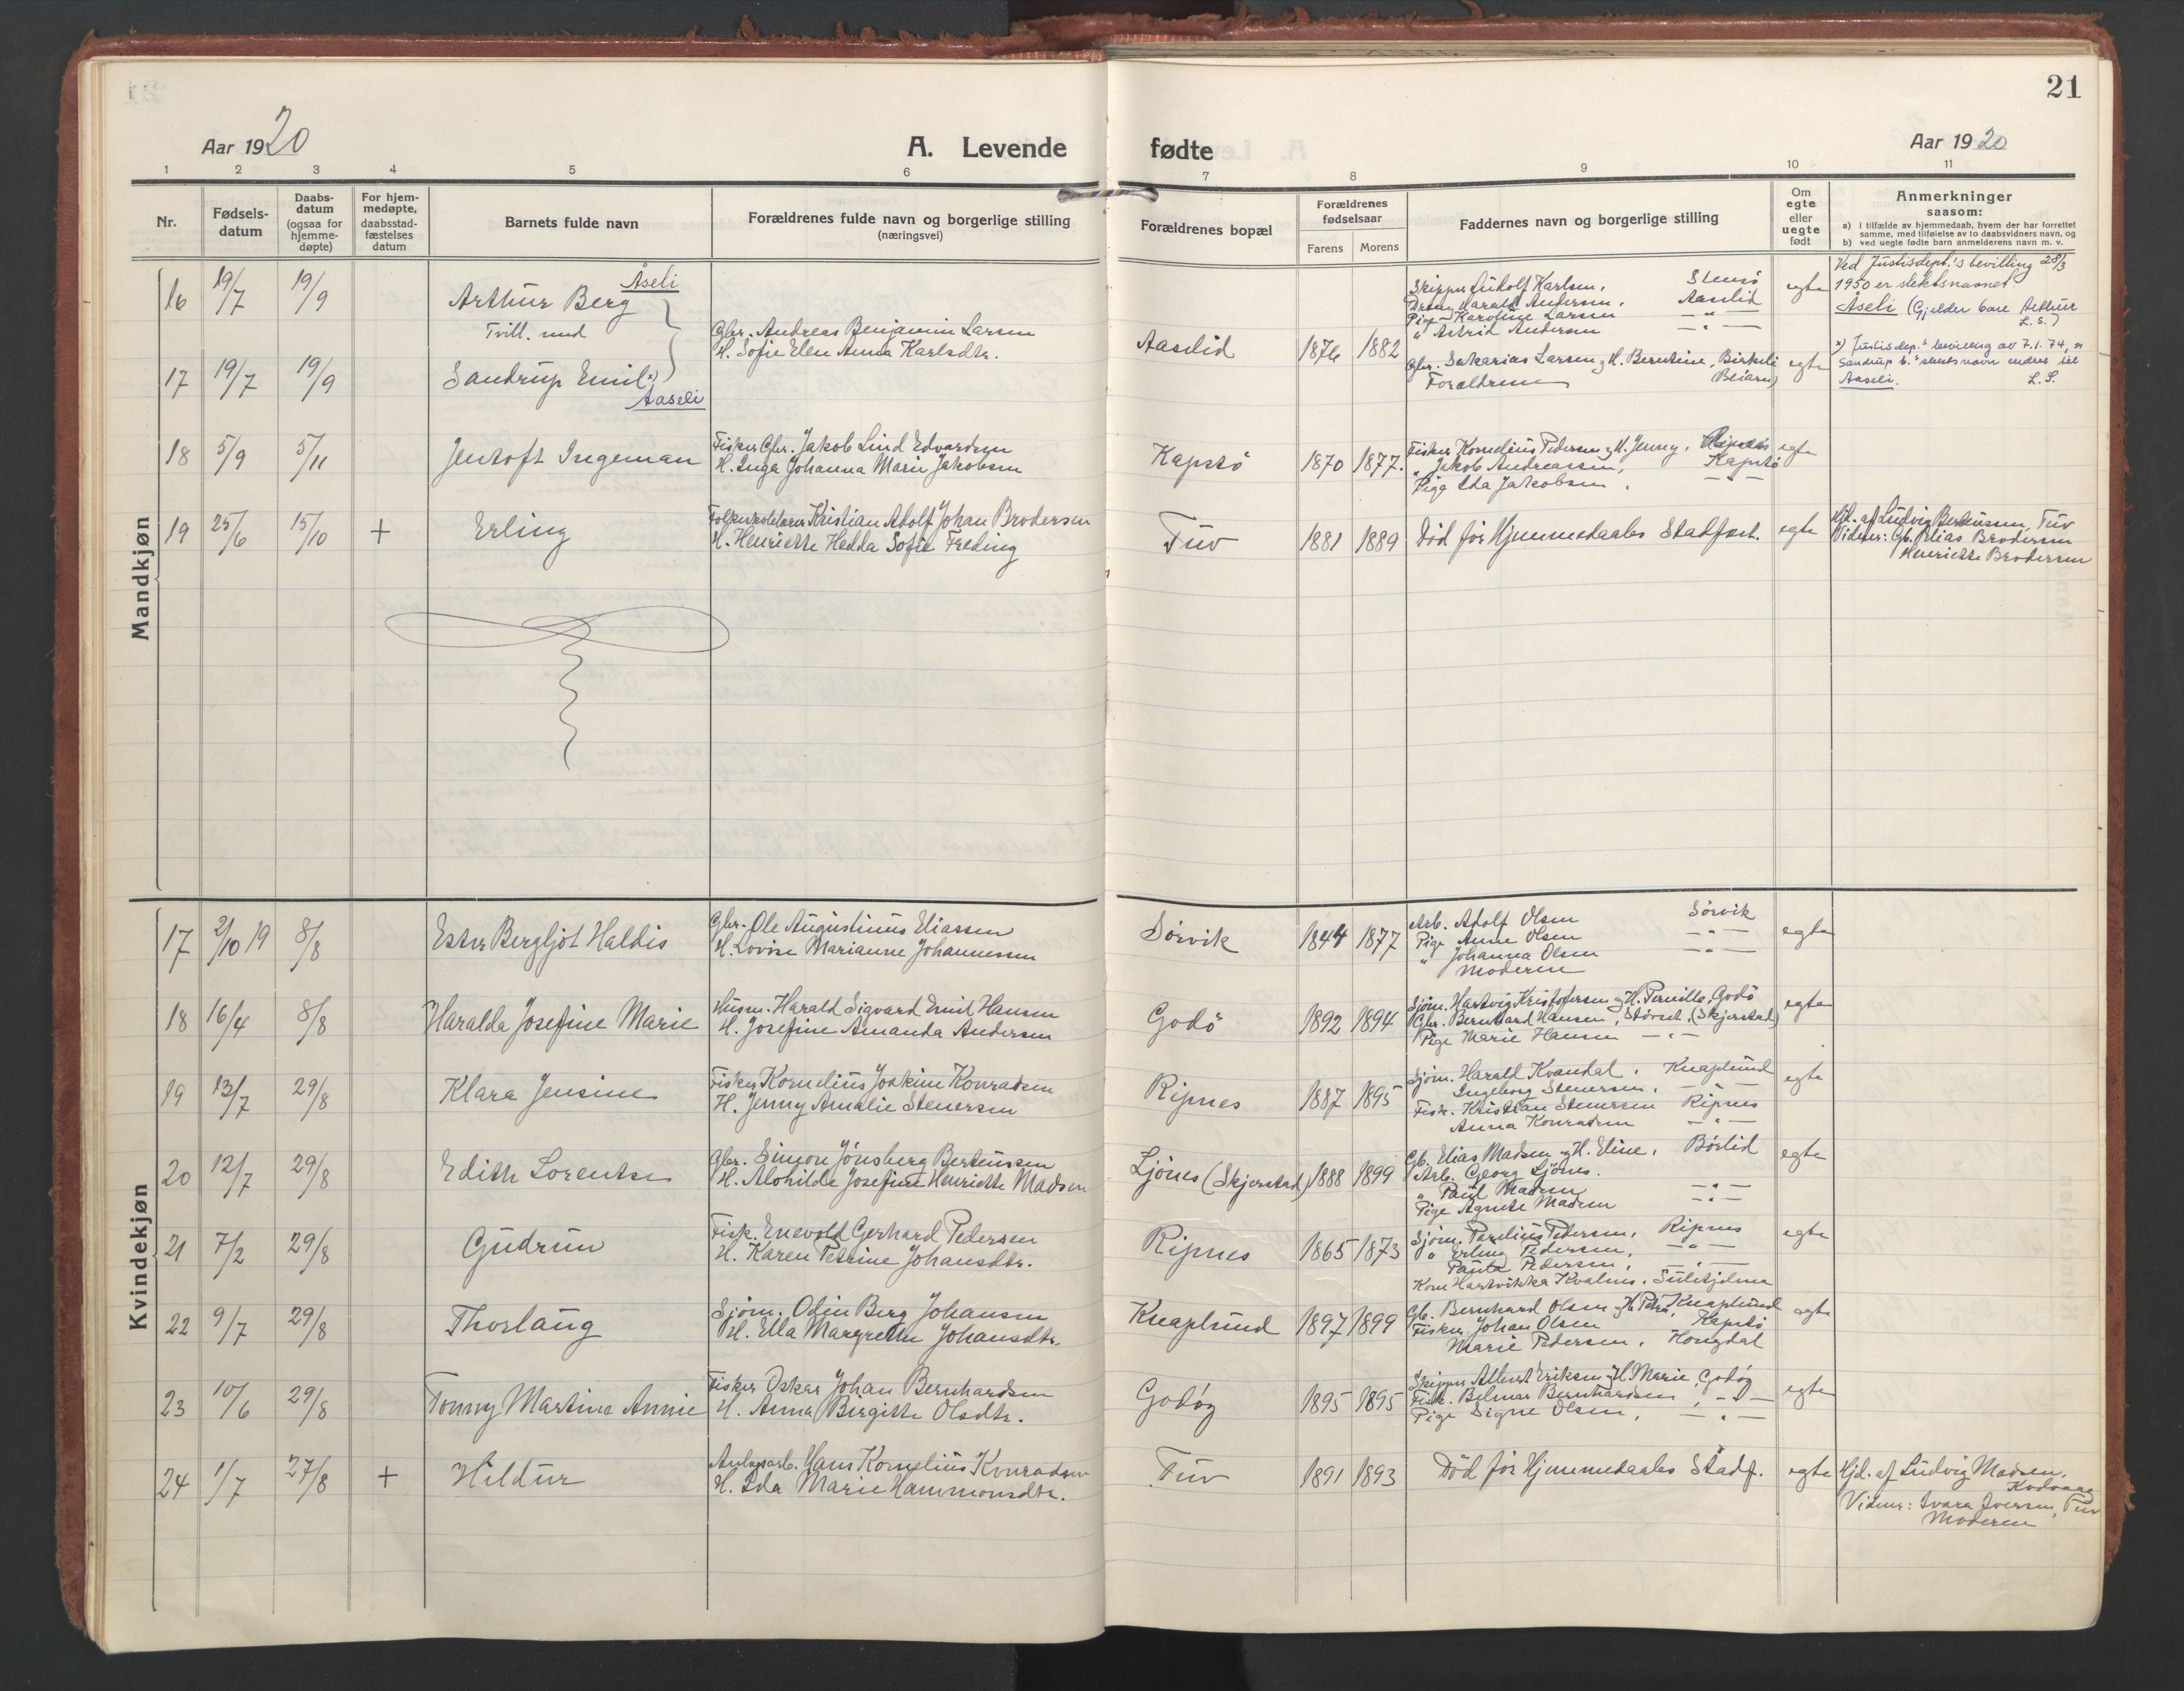 21
Aar 1920
A. Levende fødte
Aar 1920
1 2 3 4 5 6 7 8 9 10 11
Nr.
Fødsels-
datum
Daabs-
datum
(ogsaa for
hjemme-
døpte)
For hjem-
medøpte,
daabsstad-
fæstelses
datum
Barnets fulde navn
Forældrenes fulde navn og borgerlige stilling
(næringsvei)
Forældrenes bopæl
Forældrenes
fødselsaar
Farens Morens
Faddernes navn og borgerlige stilling
Om
egte
eller
uegte
født
Anmerkninger
saasom:
a) i tilfælde av hjemmedaab, hvem der har forrettet
samme, med tilføielse av to daabsvidners navn, og
b) ved uegte fødte barn anmelderens navn m. v.
Mandkjøn
16 19/7 19/9 Arthur Berg Åseli
Tvill. med
Gbr. Andreas Benjamin Larsen
H. Sofie Elen Anna Karlsdtr.
Aaselid 1876 1882
Skipper Ludolf Karlsen, Stensö
Dreng Harald Andersen, Aaselid
Pige Karoline Larsen — " —
" Astrid Andersen — " —
egte
Ved Justisdept.'s bevilling 28/3
1950 er slektsnavnet
Åseli (Gjelder bare Arthur
L.S.)
17 19/7 19/9 Sandrup Emil x)
Aaseli
Gbr. Sakarias Larsen og H. Berntine, Birkeli
Forældrene Beiaren)
egte
x) Justisdep.'s bevilling av 7.1.74, er
Sandrup E.'s slektsnavn endret til
Aaseli. L.S.
18 5/9 5/11 Jentoft Ingeman
Fisker Gbr. Jakob Lind Edvardsen
H. Inga Johanna Marie Jakobsen
Kapstö 1870 1877.
Fisker Kornelius Pedersen og H. Jenny, Ripnes
" Jakob Andreassen, Kapstö
Pige Ida Jakobsen, — " —
egte
19 25/6 15/10 + Erling
Folkeskolelærer Kristian Adolf Johan Brodersen
H. Henriette Hedda Sofie Freding
Tuv 1881 1889
Död för Hjemmedaabs Stadfæst.
egte
Hjd. af Ludvig Berteussen, Tuv
Vidner: Gb. Elias Brodersen
Henriette Brodersen
Kvindekjøn
17 2/10 19 8/8 Ester Bergljot Haldis
Gbr. Ole Augustinus Eliassen
H. Lovise Marianne Johannessen
Sörvik 1844 1877
Arb. Adolf Olsen Sörvik
Pige Anne Olsen — " —
" Johanna Olsen — " —
Moderen
egte
18 16/4 8/8 Haralda Josefine Marie
Husm. Harald Sigvard Emil Hansen
H. Josefine Amanda Andersen
Godö 1892 1894
Sjöm. Hartvig Kristofersen og H. Pernille, Godö
Gbr. Bernhard Hansen, Störset, (Skjerstad)
Pige Marie Hansen — " —
egte
19 13/7 29/8 Klara Jensine
Fisker Kornelius Joakim Konradsen
H. Jenny Amalie Stenersen
Ripnes 1887 1895
Sjöm. Harald Kvandal, Knaplund
Ingeborg Stenersen, — " —
Fisk. Kristian Stenersen Ripnes
Anna Konradsen — " —
egte
20 12/7 29/8 Edith Lorentse
Gbr. Simon Jönsberg Berteussen
H. Alohilde Josefine Henriette Madsen
Ljönes (Skjerstad) 1888 1899
Gb. Elias Madsen og H. Eline, Börlid
Arb. Georg Ljönes.
" Paul Madsen — " —
Pige Agnete Madsen — " —
egte
21 7/2 29/8 Gudrun
Fisk. Enevold Gerhard Pedersen
H. Karen Petrine Johansdtr.
Ripnes 1865 1873
Sjöm. Parelius Pedersen, Ripnes
" Erling Pedersen, — " —
Paula Pedersen, — " —
Kone Hartvikka Kvalnes, Sulitjelma
egte
22 9/7 29/8 Thorlaug
Sjöm. Odin Berg Johansen
H. Ella Margrethe Johansdtr.
Knaplund 1897 1899
Gb. Bernhard Olsen og H. Petra, Knaplund
Fisker Johan Olsen Kapstö
Marie Pedersen, Hongdal
egte
23 10/6 29/8 Tonny Martine Annie
Fisker Oskar Johan Bernhardsen
H. Anna Birgitte Olsdtr.
Godöy 1895 1895
Skipper Albert Eriksen og H. Marie, Godöy
Fisk. Belmar Bernhardsen, — " —
Pige Signe Olsen, — " —
egte
24 1/7 27/8 + Hildur
Anlegsarb. Hans Kornelius Konradsen
H. Ida Marie Hammonsdtr.
Tuv 1891 1893
Död för Hjemmedaabs Stadf.
egte
Hjd. af Ludvig Madsen,
Kodvaag
Vidner: Ivara Iversen, Tuv
Moderen